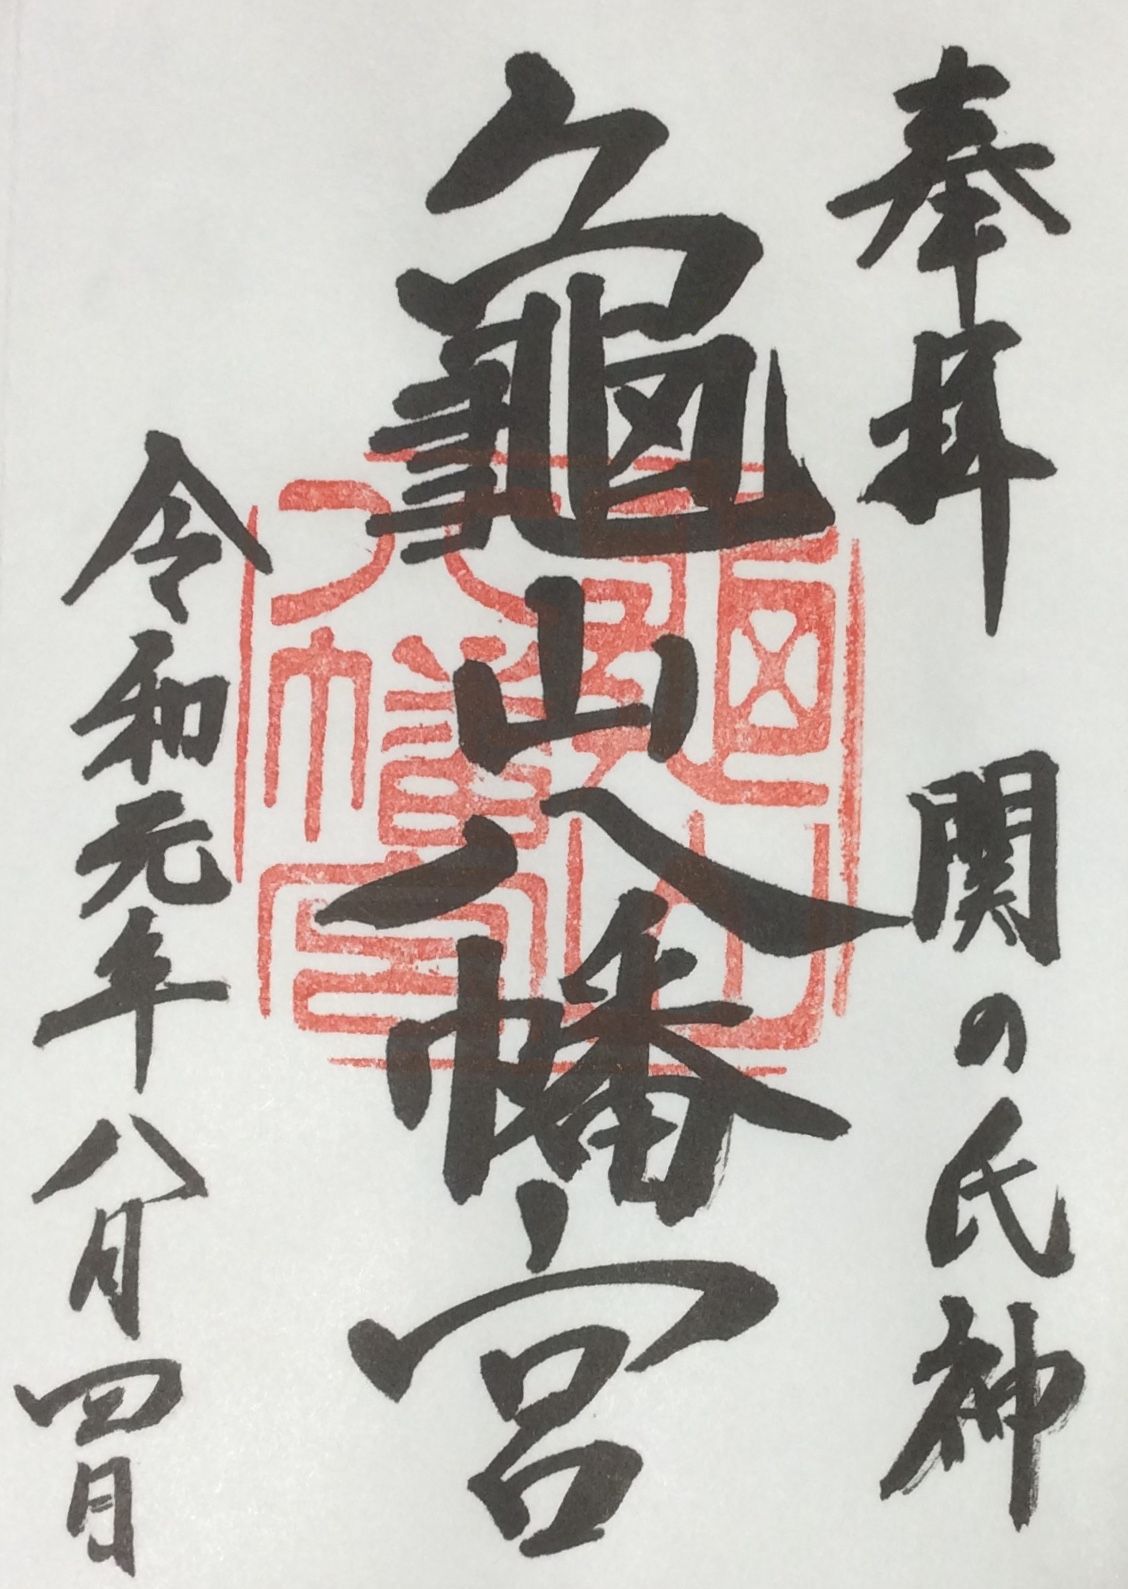 奉拝 関の氏神
龜山八幡宮
令和元年八月四日
龜山
八幡宮